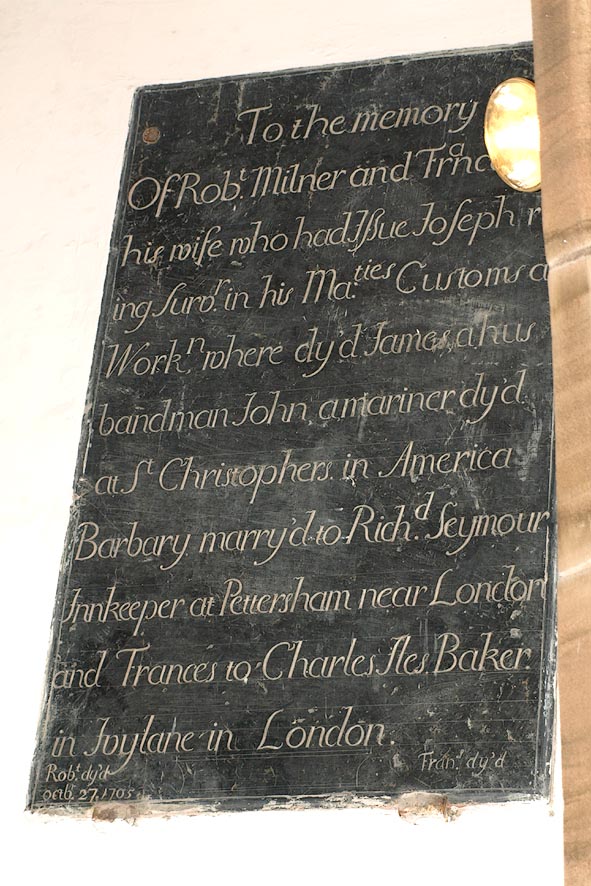 To the memory
Of Rob.t Milner and Fra
his wife who had Issue Joseph
ing Surv.r in his Ma.ties Customs a
Work.n where dy'd James a hus
bandman John a mariner dy'd
at St Christophers in America
Barbary marry'd to Rich.d Seymour
Innkeeper at Pettersham near London
and Frances to Charles Iles Baker
in Ivylane in London.
Rob.t dy'd
octb. 27. 1705
Fran.s dy'd